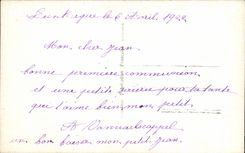 le 6 Avril 1922
Mon cher Jean
bonne permiere communion
et une petite priere pour ta tante
que t'aime bien mon petit
un bon baiser mon petit Jean